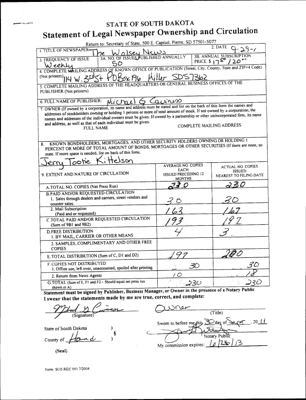 STATE OF SOUTH DAKOTA
Statement of Legal Newspaper Ownership and Circulation
Return to: Secretary of State, 500 E. Capitol, Pierre, SD 57501-5077
1. TITLE OF NEWSPAPER The Wolsey News
2. DATE 9-29-
3. FREQUENCY OF ISSUE Weekly
3A. NO. OF ISSUES PUBLISHED ANNUALLY 50
3B. ANNUAL SUBSCRIPTION PRICE
4. COMPLETE MAILING ADDRESS OF KNOWN OFFICE OF PUBLICATION (Street, City, County, State and ZIP+4 Code) (Not printers)
114 W. 3rd PO Box Miller SD 57362
5. COMPLETE MAILING ADDRESS OF THE HEADQUARTERS OR GENERAL BUSINESS OFFICES OF THE PUBLISHER (Not printers)
6. FULL NAME OF PUBLISHER: Michael
7. OWNER (If owned by a corporation, its name and address must be stated and list on the back of this form the names and addresses of stockholders owning or holding 1 percent or more of total amount of stock. If not owned by a corporation, the names and addresses of the individual owners must be given. If owned by a partnership or other unincorporated firm, its name and address, as well as that of each individual must be given.
FULL NAME COMPLETE MAILING ADDRESS
8. KNOWN BONDHOLDERS, MORTGAGEES, AND OTHER SECURITY HOLDERS OWNING OR HOLDING 1 PERCENT OR MORE OF TOTAL AMOUNT OF BONDS, MORTGAGES OR OTHER SECURITIES (If there are none, so state. If more space is needed, list on back of this form.
Jerry Tootie Kittelson
9. EXTENT AND NATURE OF CIRCULATION
AVERAGE NO. COPIES EACH ISSUED PRECEDING 12 MONTHS
ACTUAL NO. COPIES ISSUED NEAREST TO FILING DATE
A. TOTAL NO. COPIES (Net Press Run) 230 230
B. PAID AND/OR REQUESTED CIRCULATION
1. Sales through dealers and carriers, street vendors and counter sales 30 30
2. Mail Subscription (Paid and or requested) 163 167
C. TOTAL PAID AND/OR REQUESTED CIRCULATION (Sum of 9B1 and 9B2) 193 197
D. FREE DISTRIBUTION
1. BY MAIL, CARRIER OR OTHER MEANS 4 3
2. SAMPLES, COMPLIMENTARY AND OTHER FREE COPIES
E. TOTAL DISTRIBUTION (Sum of C, D1 and D2) 197 200
F. COPIES NOT DISTRIBUTED
1. Office use, left over, unaccounted, spoiled after printing 30 30
2. Return from News Agents
G. TOTAL (Sum of E, F1 and F2 - Should equal net press run shown in A) 230 230
Statement must be signed by Publisher, Business Manager, or Owner in the presence of a Notary Public
I swear that the statements made by me are true, correct, and complete:
Owner
(Signature) (Title)
State of South Dakota )
County of Hand )
Sworn to before me this 30 day of Sept 2011
Notary Public
(Seal)
My commission expires:
Form: SOS REC 001 7/2004